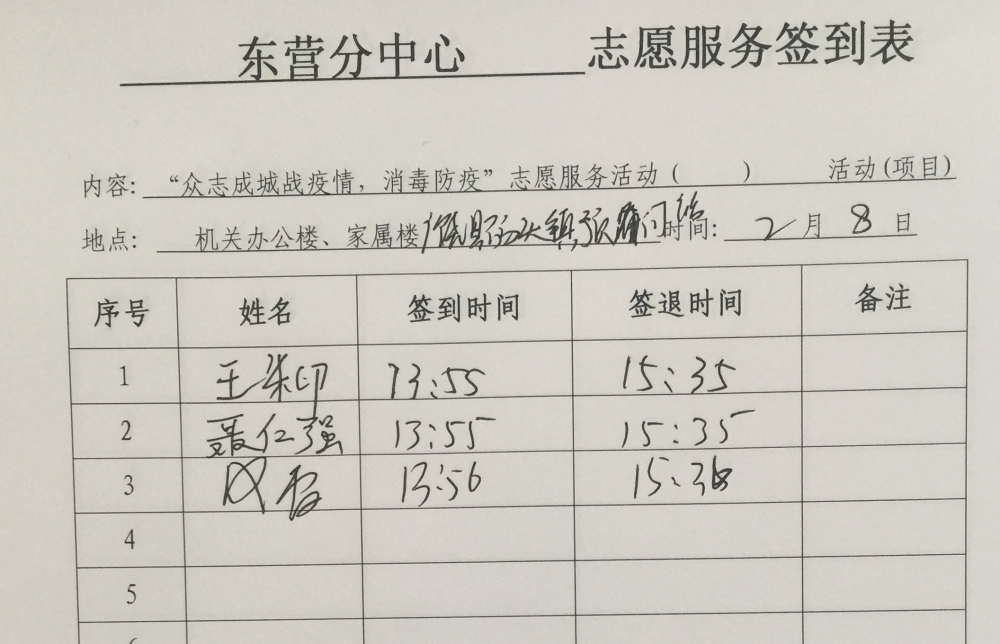 东营分中心 志愿服务签到表
内容: “众志成城战疫情，消毒防疫”志愿服务活动 ( ) 活动(项目)
地点: 机关办公楼、家属楼 时间: 2月8日
序号 姓名 签到时间 签退时间 备注
1 王荣印 13:55 15:35
2 聂仁强 13:55 15:35
3 13:56 15:36
4
5
6